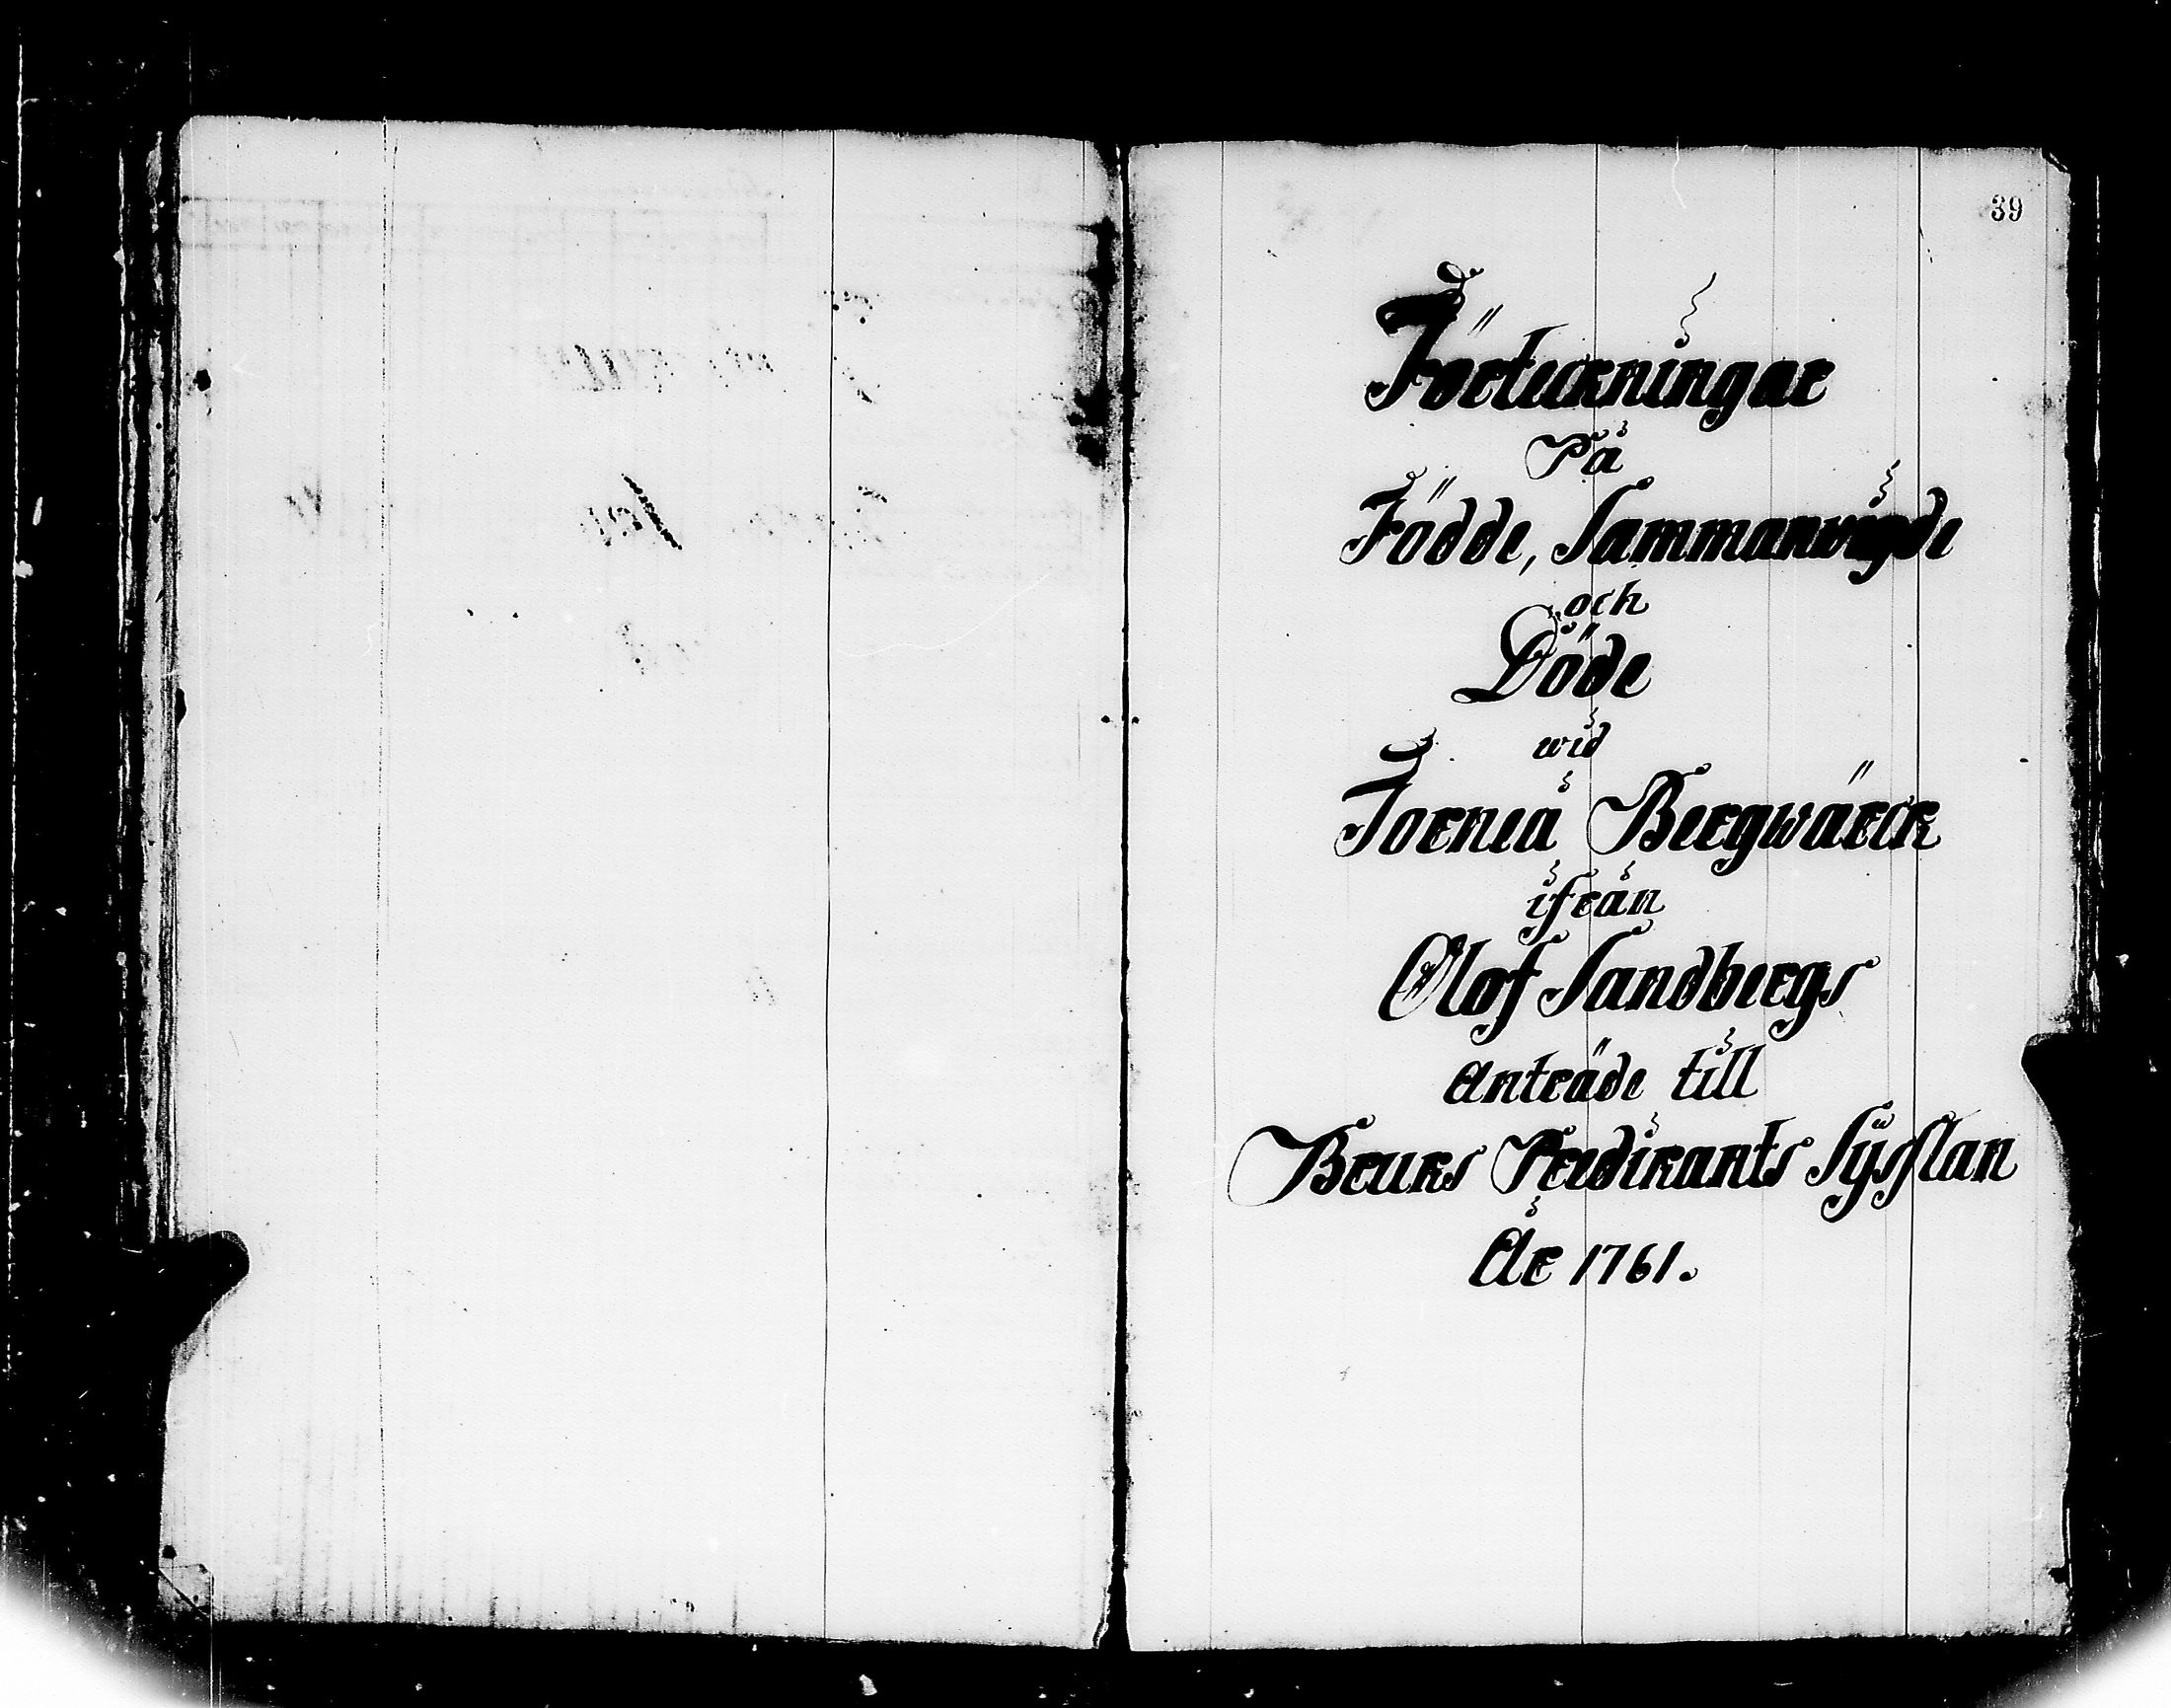 39
Förteckningar
På
Födde, Sammanvigde
och
Döde
wid
Torneå Bergwärck
ifrån
Olof Sandbergs
anträde till
Bruks Predikants Sÿsslan
År 1761.